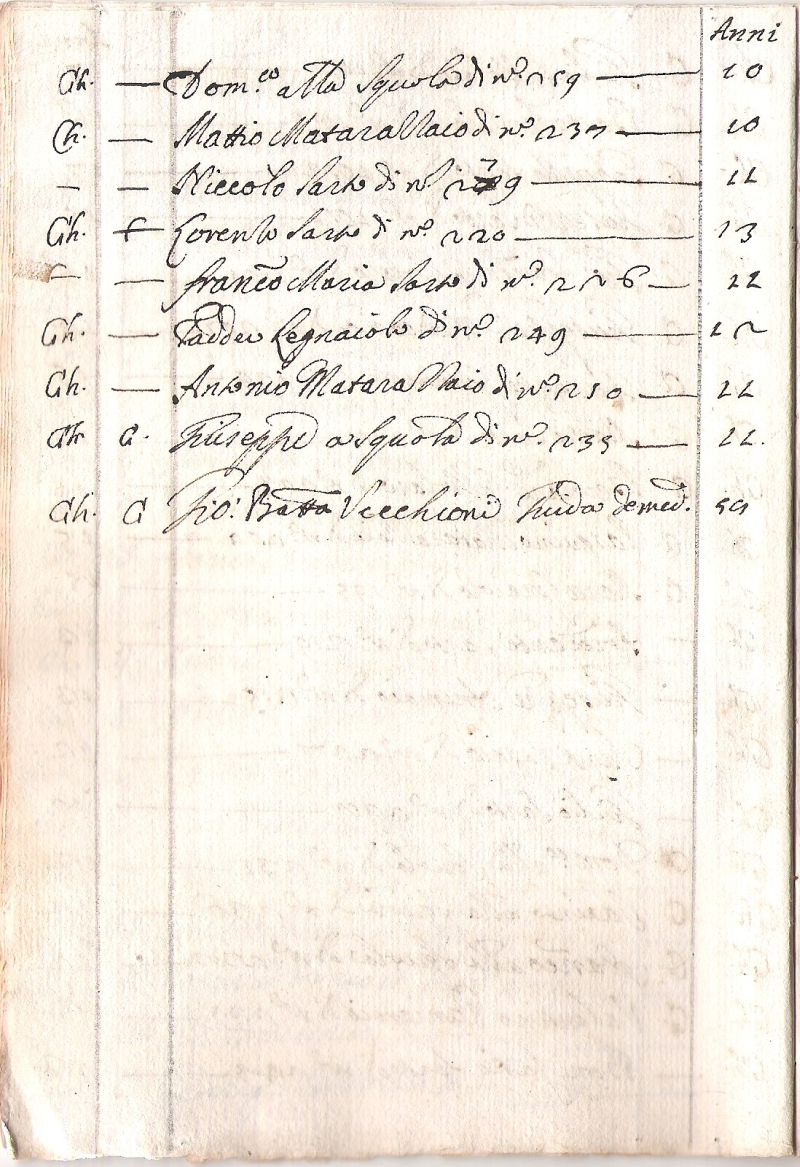 Anni
Ch. — Dom.co alla Squola di n.o 259 — 10
Ch. — Mattio Matarazzaio di n.o 237 — 10
— — Niccolò Sarto di n.o 9 — 11
Ch. f Lorenzo Sarto di n.o 220 — 13
— — Franco Maria Sarto di n.o 226 — 11
Ch. — Taddeo Legnaiolo di n.o 249 — 12
Ch. — Antonio Matarazzaio di n.o 250 — 11
Ch. C. Giuseppe a Squola di n.o 235 — 11.
Ch. C Gio: Batta Vecchioni Guida